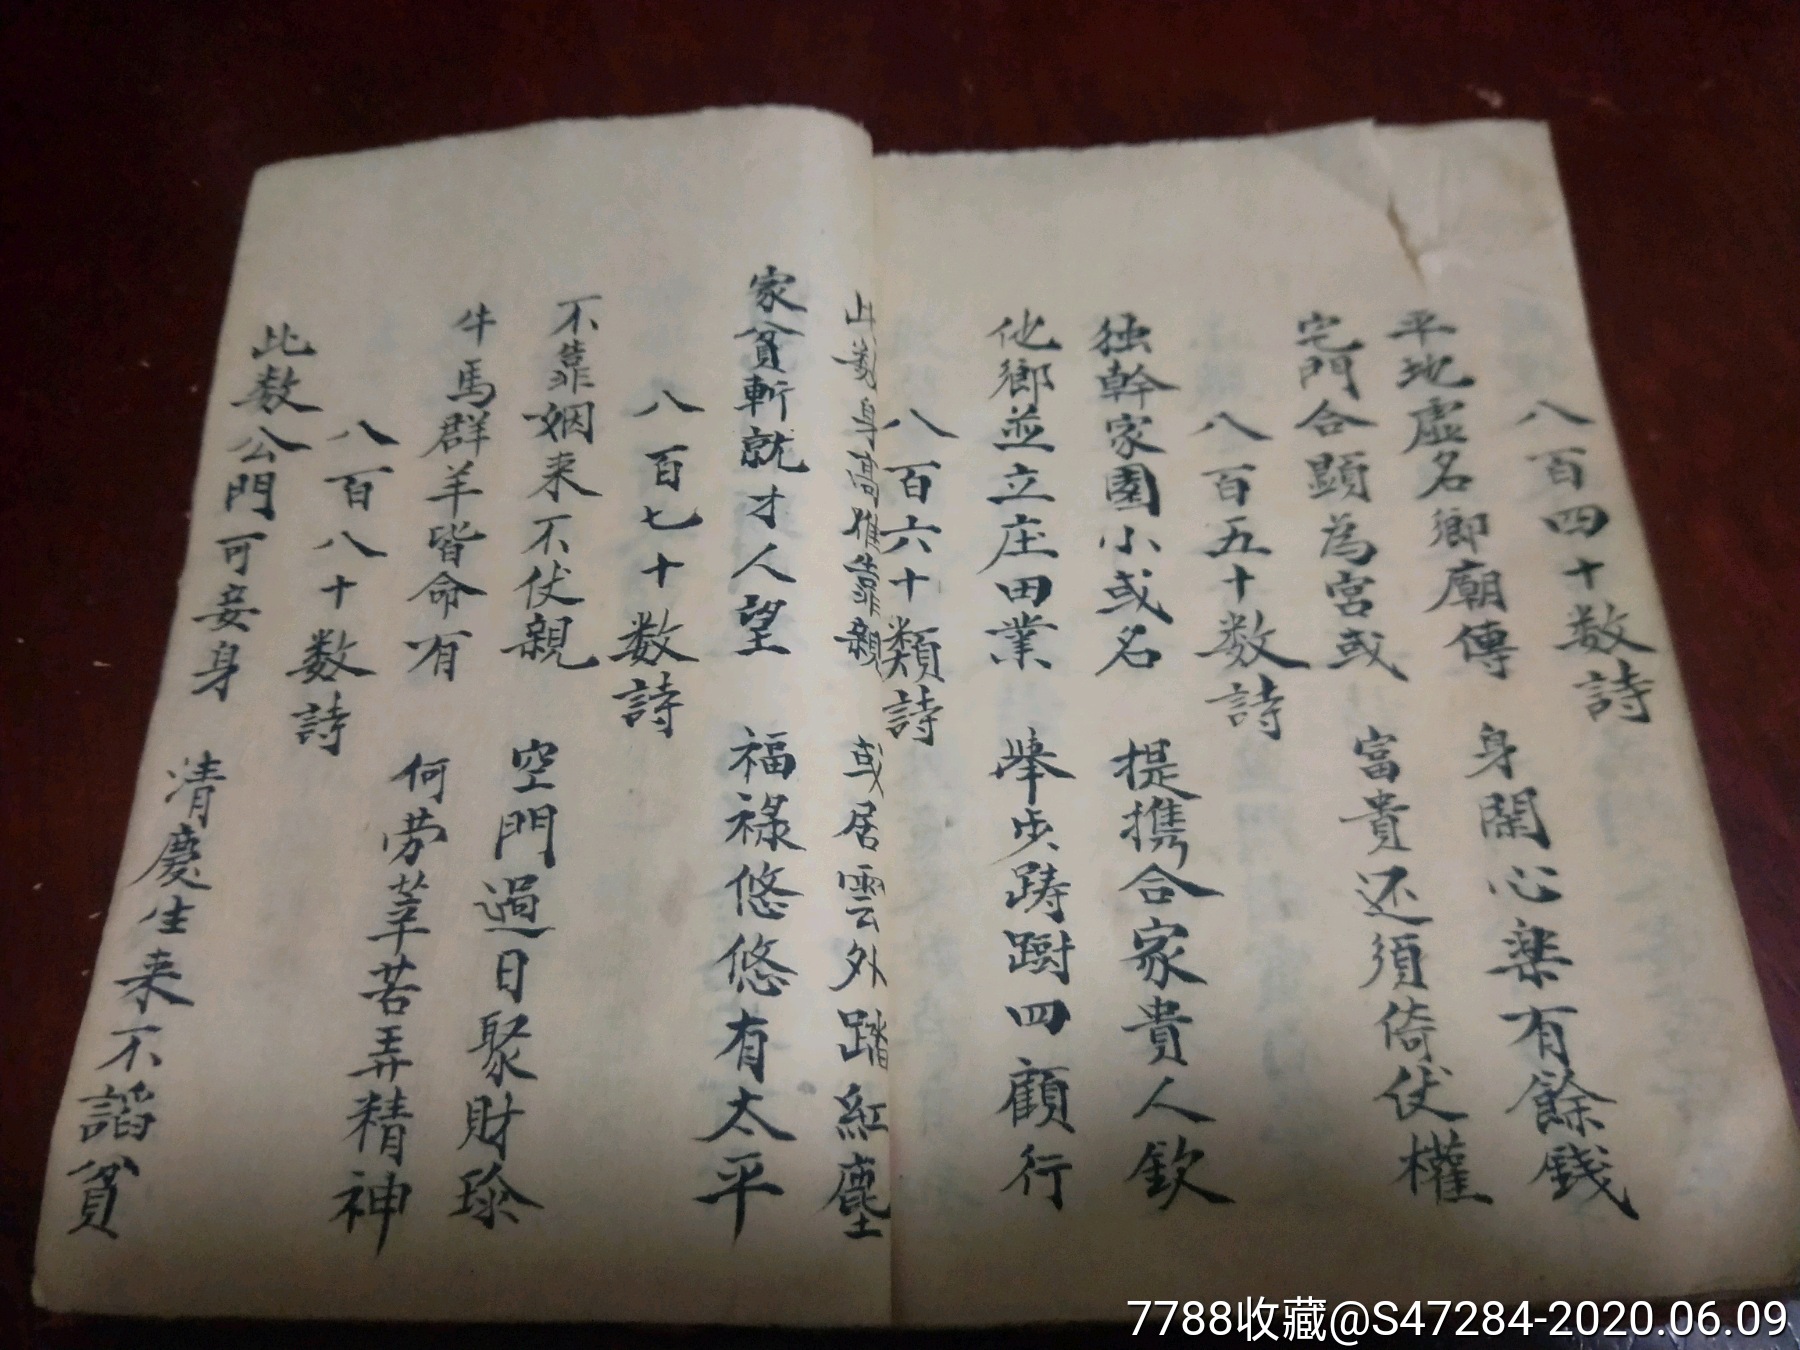 八百四十数詩
平地虚名鄉廟傳 身閑心楽有餘錢
宅門合顕為宮或 富貴还須倚伏權
八百五十数詩
独幹家園小或名 提携合家貴人欽
他鄉並立庄田業 举步踌蹰四顧行
八百六十類詩
此数身高难靠親 或居雲外踏紅塵
家貧斬就才人望 福祿悠悠有太平
八百七十数詩
不靠姻来不伏親 空門過日聚財珍
牛馬群羊皆命有 何劳莘苦弄精神
八百八十数詩
比数公門可妾身 清慶生来不謟貧
7788收藏@S47284-2020.06.09